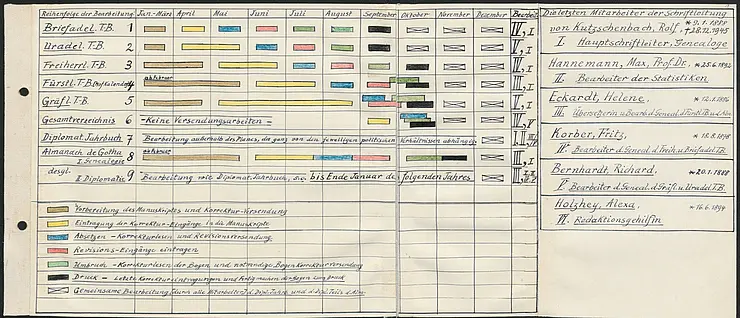 Reihenfolge der Bearbeitung Jan.-März April Mai Juni Juli August September Oktober November Dezember Bearbeit.
Briefadel. T.B. 1 IV, I
Uradel. T.B. 2 V, I
Freiherrl. T.B. 3 IV, I
Fürstl. T.B. (Hofkalender) 4 III, I
Gräfl. T.B. 5 V, I
Gesamtverzeichnis 6 - Keine Versendungsarbeiten -
Diplomat. Jahrbuch 7 Bearbeitung außerhalb des Planes, da ganz von den jeweiligen politischen Verhältnissen abhängig
Almanach de Gotha
I. Genealogie 8 III, I
desgl.
II. Diplomatie 9 Bearbeitung wie Diplomat. Jahrbuch, die bis Ende Januar des folgenden Jahres
Vorbereitung des Manuskriptes und Korrektur-Versendung
Eintragung der Korrektur-Eingänge in die Manuskripte
Absetzen - Korrekturlesen und Revisionsversendung
Revisions-Eingänge eintragen
Umbruch - Korrekturlesen der Bogen und notwendige Bogen Korrekturversendung
Druck - Letzte Korrektureintragungen und Fertigmachen der Bogen zum Druck
Gemeinsame Bearbeitung durch alle Mitarbeiter
Die letzten Mitarbeiter der Schriftleitung
von Kutzschenbach, Rolf. * 9.1.1888 † 28.12.1945
I. Hauptschriftleiter, Genealoge
Hannemann, Max, Prof. Dr. * 25.6.1892
II. Bearbeiter der Statistiken
Eckardt, Helene.
III. Übersetzerin u. Bearb. d. Geneal. d. Fürstl. TB u. Alm.
Körber, Fritz,
IV. Bearbeiter d. Geneal. d. Freih. u. Briefadel TB.
Bernhardt, Richard. * 20.1.1888
V. Bearbeiter d. Geneal. d. Gräfl. u. Uradel TB.
Holzhey, Alexa. * 16.6.1894
VI. Redaktionsgehilfin